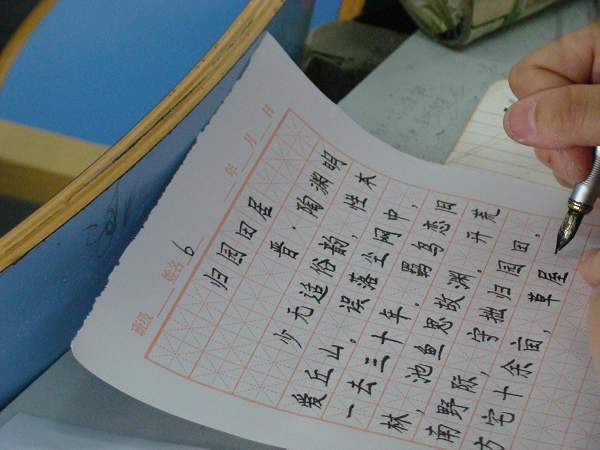 班级 姓名 6 年 月 日
归园田居
晋·陶渊明
少无适俗韵，性本
爱丘山。误落尘网中，
一去三十年。羁鸟恋旧
林，池鱼思故渊。开荒
南野际，守拙归园田。
方宅十余亩，草屋